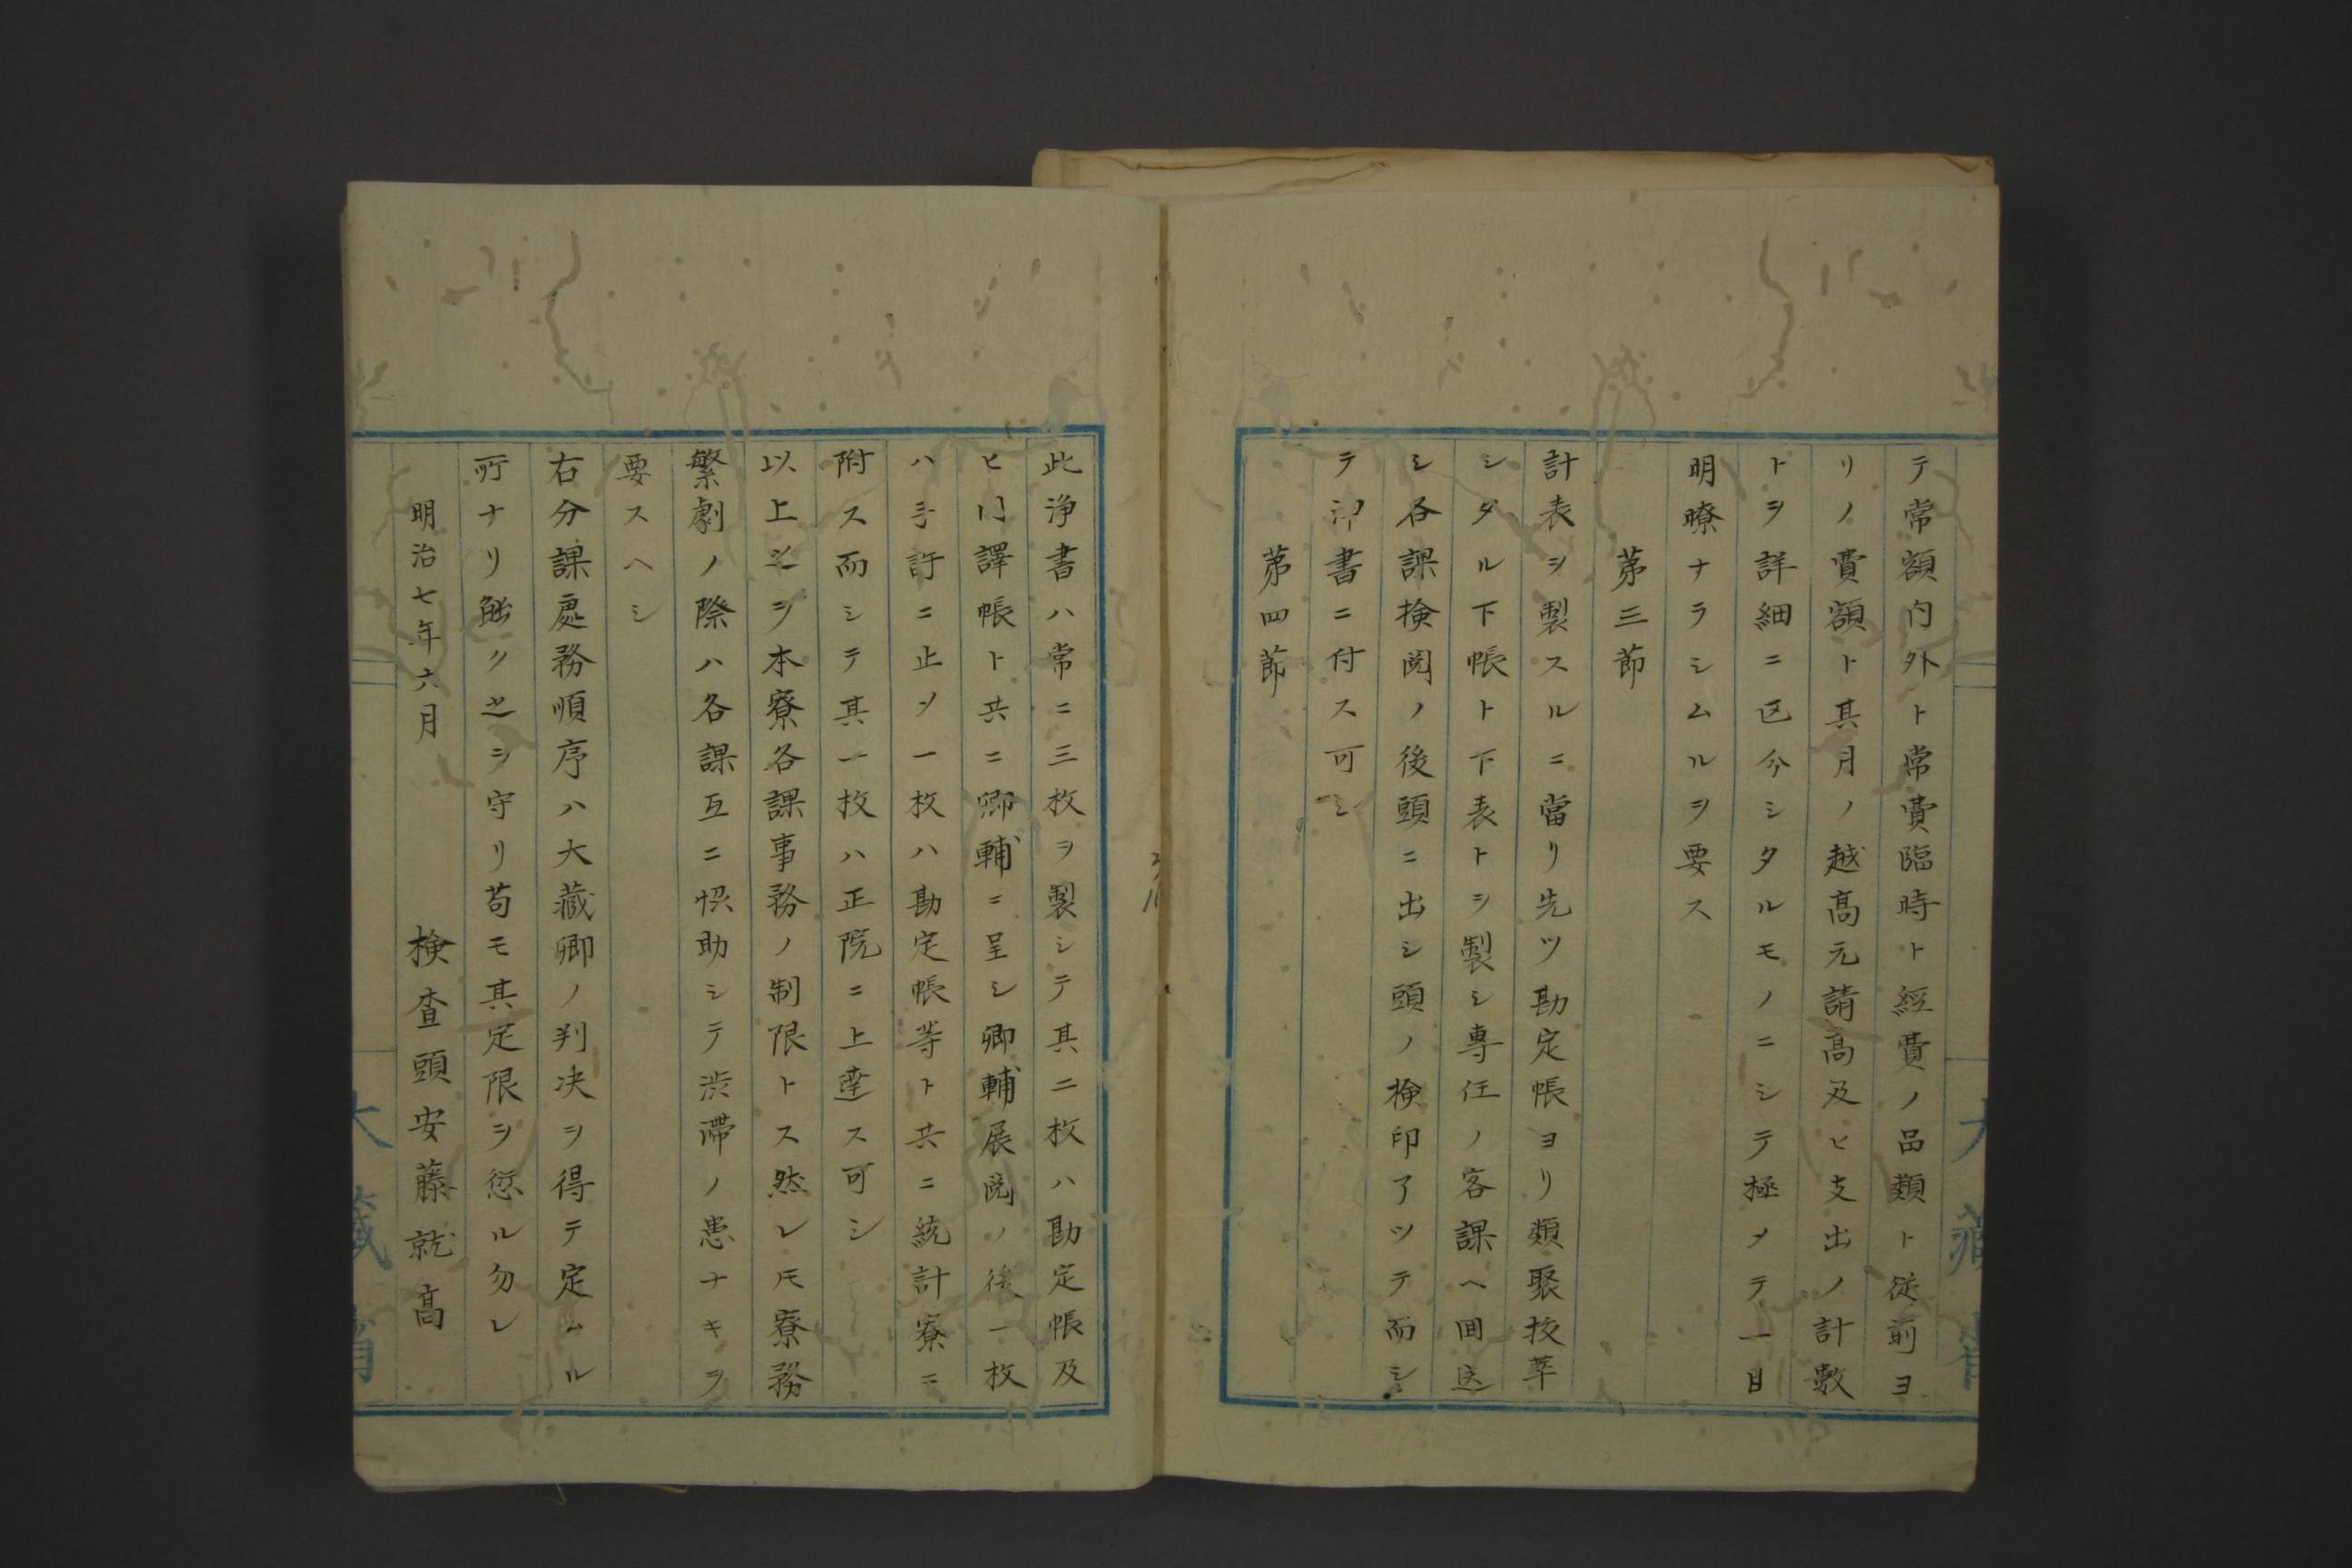 テ常額内外ト常費臨時ト經費ノ品類ト従前ヨ
リノ費額ト其月ノ越高元請高及ヒ支出ノ計數
トヲ詳細ニ区分シタルモノニシテ極メテ一目
明瞭ナラシムルヲ要ス
第三節
計表ヲ製スルニ當リ先ツ勘定帳ヨリ類聚抜萃
シタル下帳ト下表トヲ製シ専任ノ各課ヘ回送
シ各課検閲ノ後頭ニ出シ頭ノ検印了ツテ而シ
テ浄書ニ付ス可シ
第四節
此浄書ハ常ニ三枚ヲ製シテ其二枚ハ勘定帳及
ヒ内譯帳ト共ニ卿輔ニ呈シ卿輔展閲ノ後一枚
ハ手許ニ止メ一枚ハ勘定帳等ト共ニ統計寮ニ
附ス而シテ其一枚ハ正院ニ上達ス可シ
以上之ヲ本寮各課事務ノ制限トス然レ𪜈寮務
繁劇ノ際ハ各課互ニ協助シテ渋滞ノ患ナキヲ
要スヘシ
右分課處務順序ハ大藏卿ノ判决ヲ得テ定ムル
所ナリ能ク之ヲ守リ苟モ其定限ヲ愆ル勿レ
明治七年六月
検査頭安藤就高
大藏省